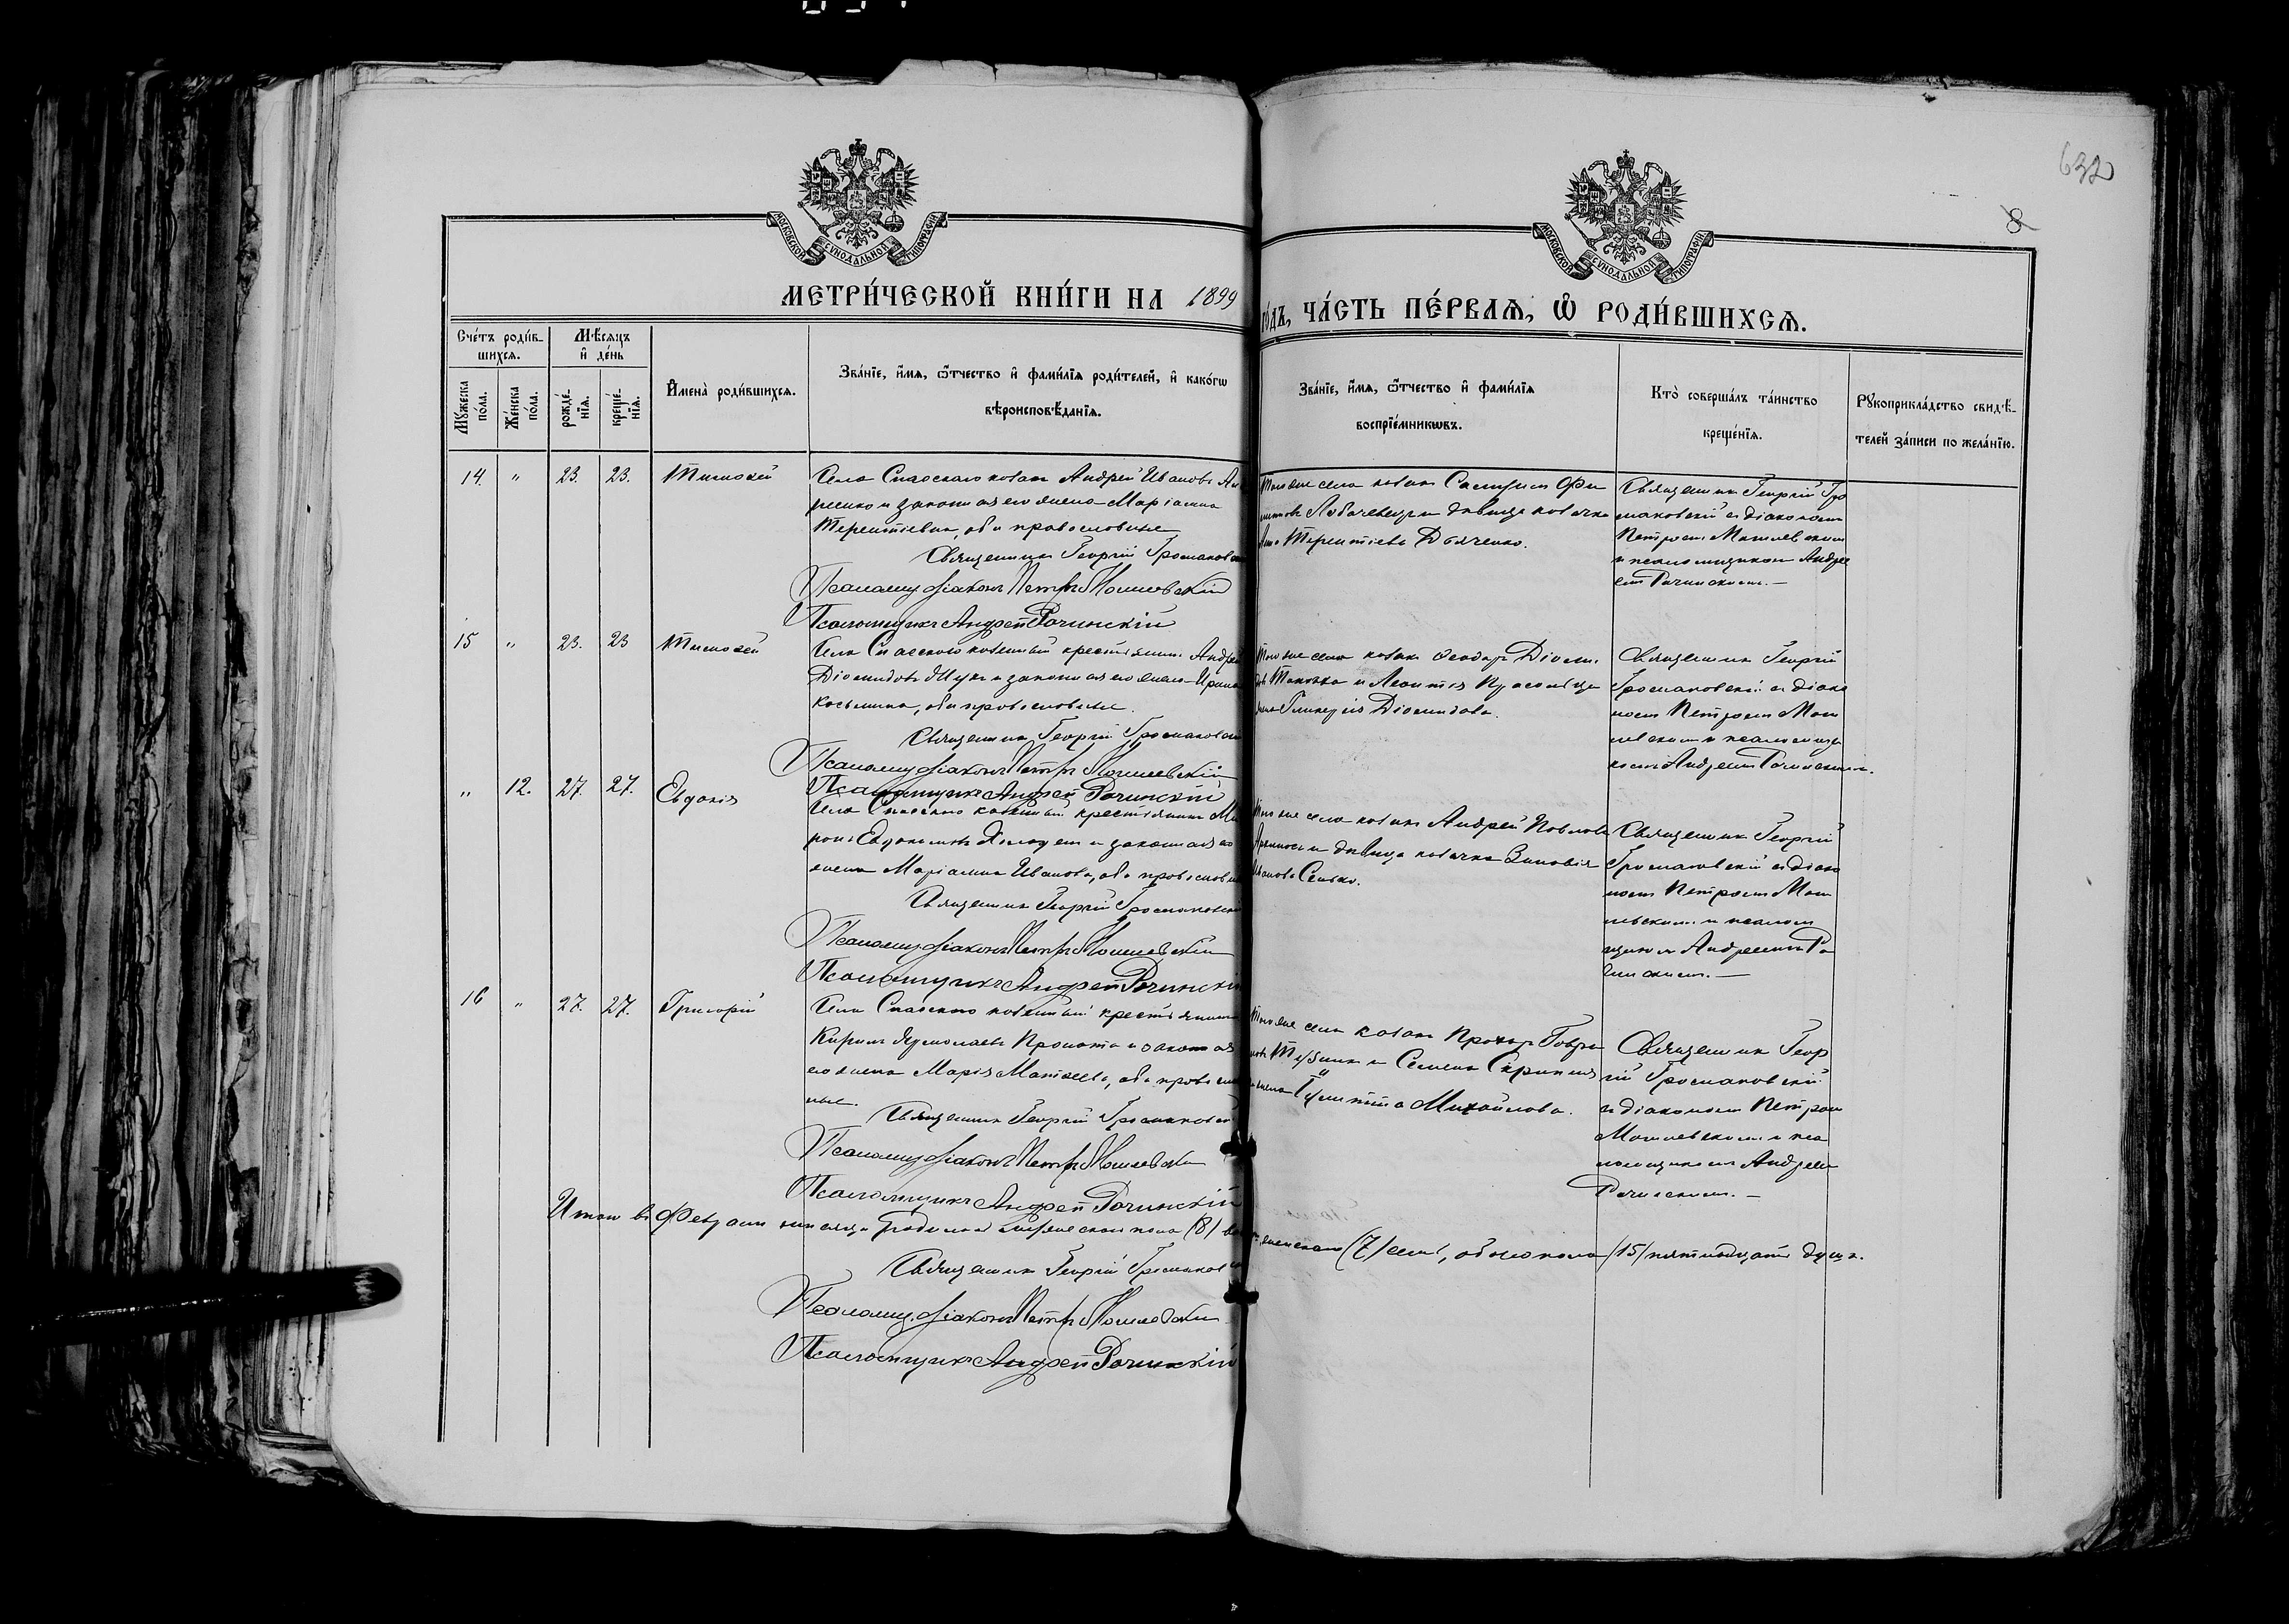 632
8
МОСКОВСКОЙ СѴНОДАЛЬНОЙ ТИПОГРАФІИ
МОСКОВСКОЙ СѴНОДАЛЬНОЙ ТИПОГРАФІИ
МЕТРИ́ЧЕСКОЙ КНИ́ГИ НА 1899
го́дъ, ЧА́СТЬ ПЕ́РВАѦ, Ѡ РОДИ́ВШИХСѦ.
Сче́тъ роди́вшихсѧ.
Мѣ́сѧцъ и҆ де́нь
Мꙋ́жеска по́ла.
Же́нска по́ла.
рожде́нїѧ.
креще́нїѧ.
И҆мена̀ роди́вшихсѧ.
Зва́нїе, и҆́мѧ, ѻ҆́тчество и҆ фами́лїѧ роди́телей, и҆ како́гѡ
вѣроисповѣ́данїѧ.
Зва́нїе, и҆́мѧ, ѻ҆́тчество и҆ фами́лїѧ
воспрїе́мникѡвъ.
Кто̀ соверша́лъ та́инство
креще́нїѧ.
Рꙋкоприкла́дство свидѣ́-
телей за́писи по жела́нїю.
14. " 23. 23. Тимофей
Села Спасскаго козакъ Андрей Ивановъ
и законная его жена Маріамна
Терентіевна, оба православные
Священникъ Георгій Громаковскій
Псаломщ. діаконъ Петръ Мошлевскій
Псаломщикъ Андрей Рачинскій
Того же села козакъ
и дѣвица козачка
Терентіева Дяченко.
Священникъ Георгій Гро
маковскій съ діакономъ
Петромъ Мошлевскимъ
и псаломщикомъ Андре
емъ Рачинскимъ.—
15 " 23. 23 Тимофей
Села Спасского казенный крестьянинъ Андрей
Діомидовъ Жукъ и законная его жена Ирина
Косьмина, оба православные.
Священникъ Георгій Громаковскій
Псаломщ. діаконъ Петръ Мошлевскій
Псаломщикъ Андрей Рачинскій
Того же села козакъ Феодоръ Діоми
и Леонтія
жена Гликерія Діомидова.
Священникъ Георгій
Громаковскій съ діако
номъ Петромъ Мош
левскимъ и псаломщи
комъ Андреемъ Рачинскимъ.
" 12. 27. 27. Евдокія
Села Спасского казенный крестьянинъ Ми
ронъ Евдокимовъ и законная его
жена Маріамна Иванова, оба православные
Священникъ Георгій Громаковскій
Псаломщ. діаконъ Петръ Мошлевскій
Псаломщикъ Андрей Рачинскій
Того же села козакъ Андрей Павловъ
и дѣвица козачка Зиновія
Иванова Сенько.
Священникъ Георгій
Громаковскій съ діако
номъ Петромъ Мош
левскимъ и псалом
щикомъ Андреемъ Ра
чинскимъ.—
16 " 27. 27. Григорій
Села Спасского казенный крестьянинъ
Кирилъ Ермолаевъ и законная
его жена Марія Матвеева, оба православ
ные.
Священникъ Георгій Громаковскій
Псаломщ. діаконъ Петръ Мошлевскій
Псаломщикъ Андрей Рачинскій
Того же села козакъ Прохоръ Гаври
и Семена
жена Михайлова.
Священникъ Геор
гій Громаковскій
съ діакономъ Петромъ
Мошлевскимъ и пса
ломщикомъ Андреем
Рачинскимъ.—
Итого въ Февралѣ мѣсяцѣ родилось мужескаго пола (8)
женскаго (7) семь, обоего пола (15) пятнадцать душъ.
Священникъ Георгій Громаковскій
Псаломщ. діаконъ Петръ Мошлевскій
Псаломщикъ Андрей Рачинскій